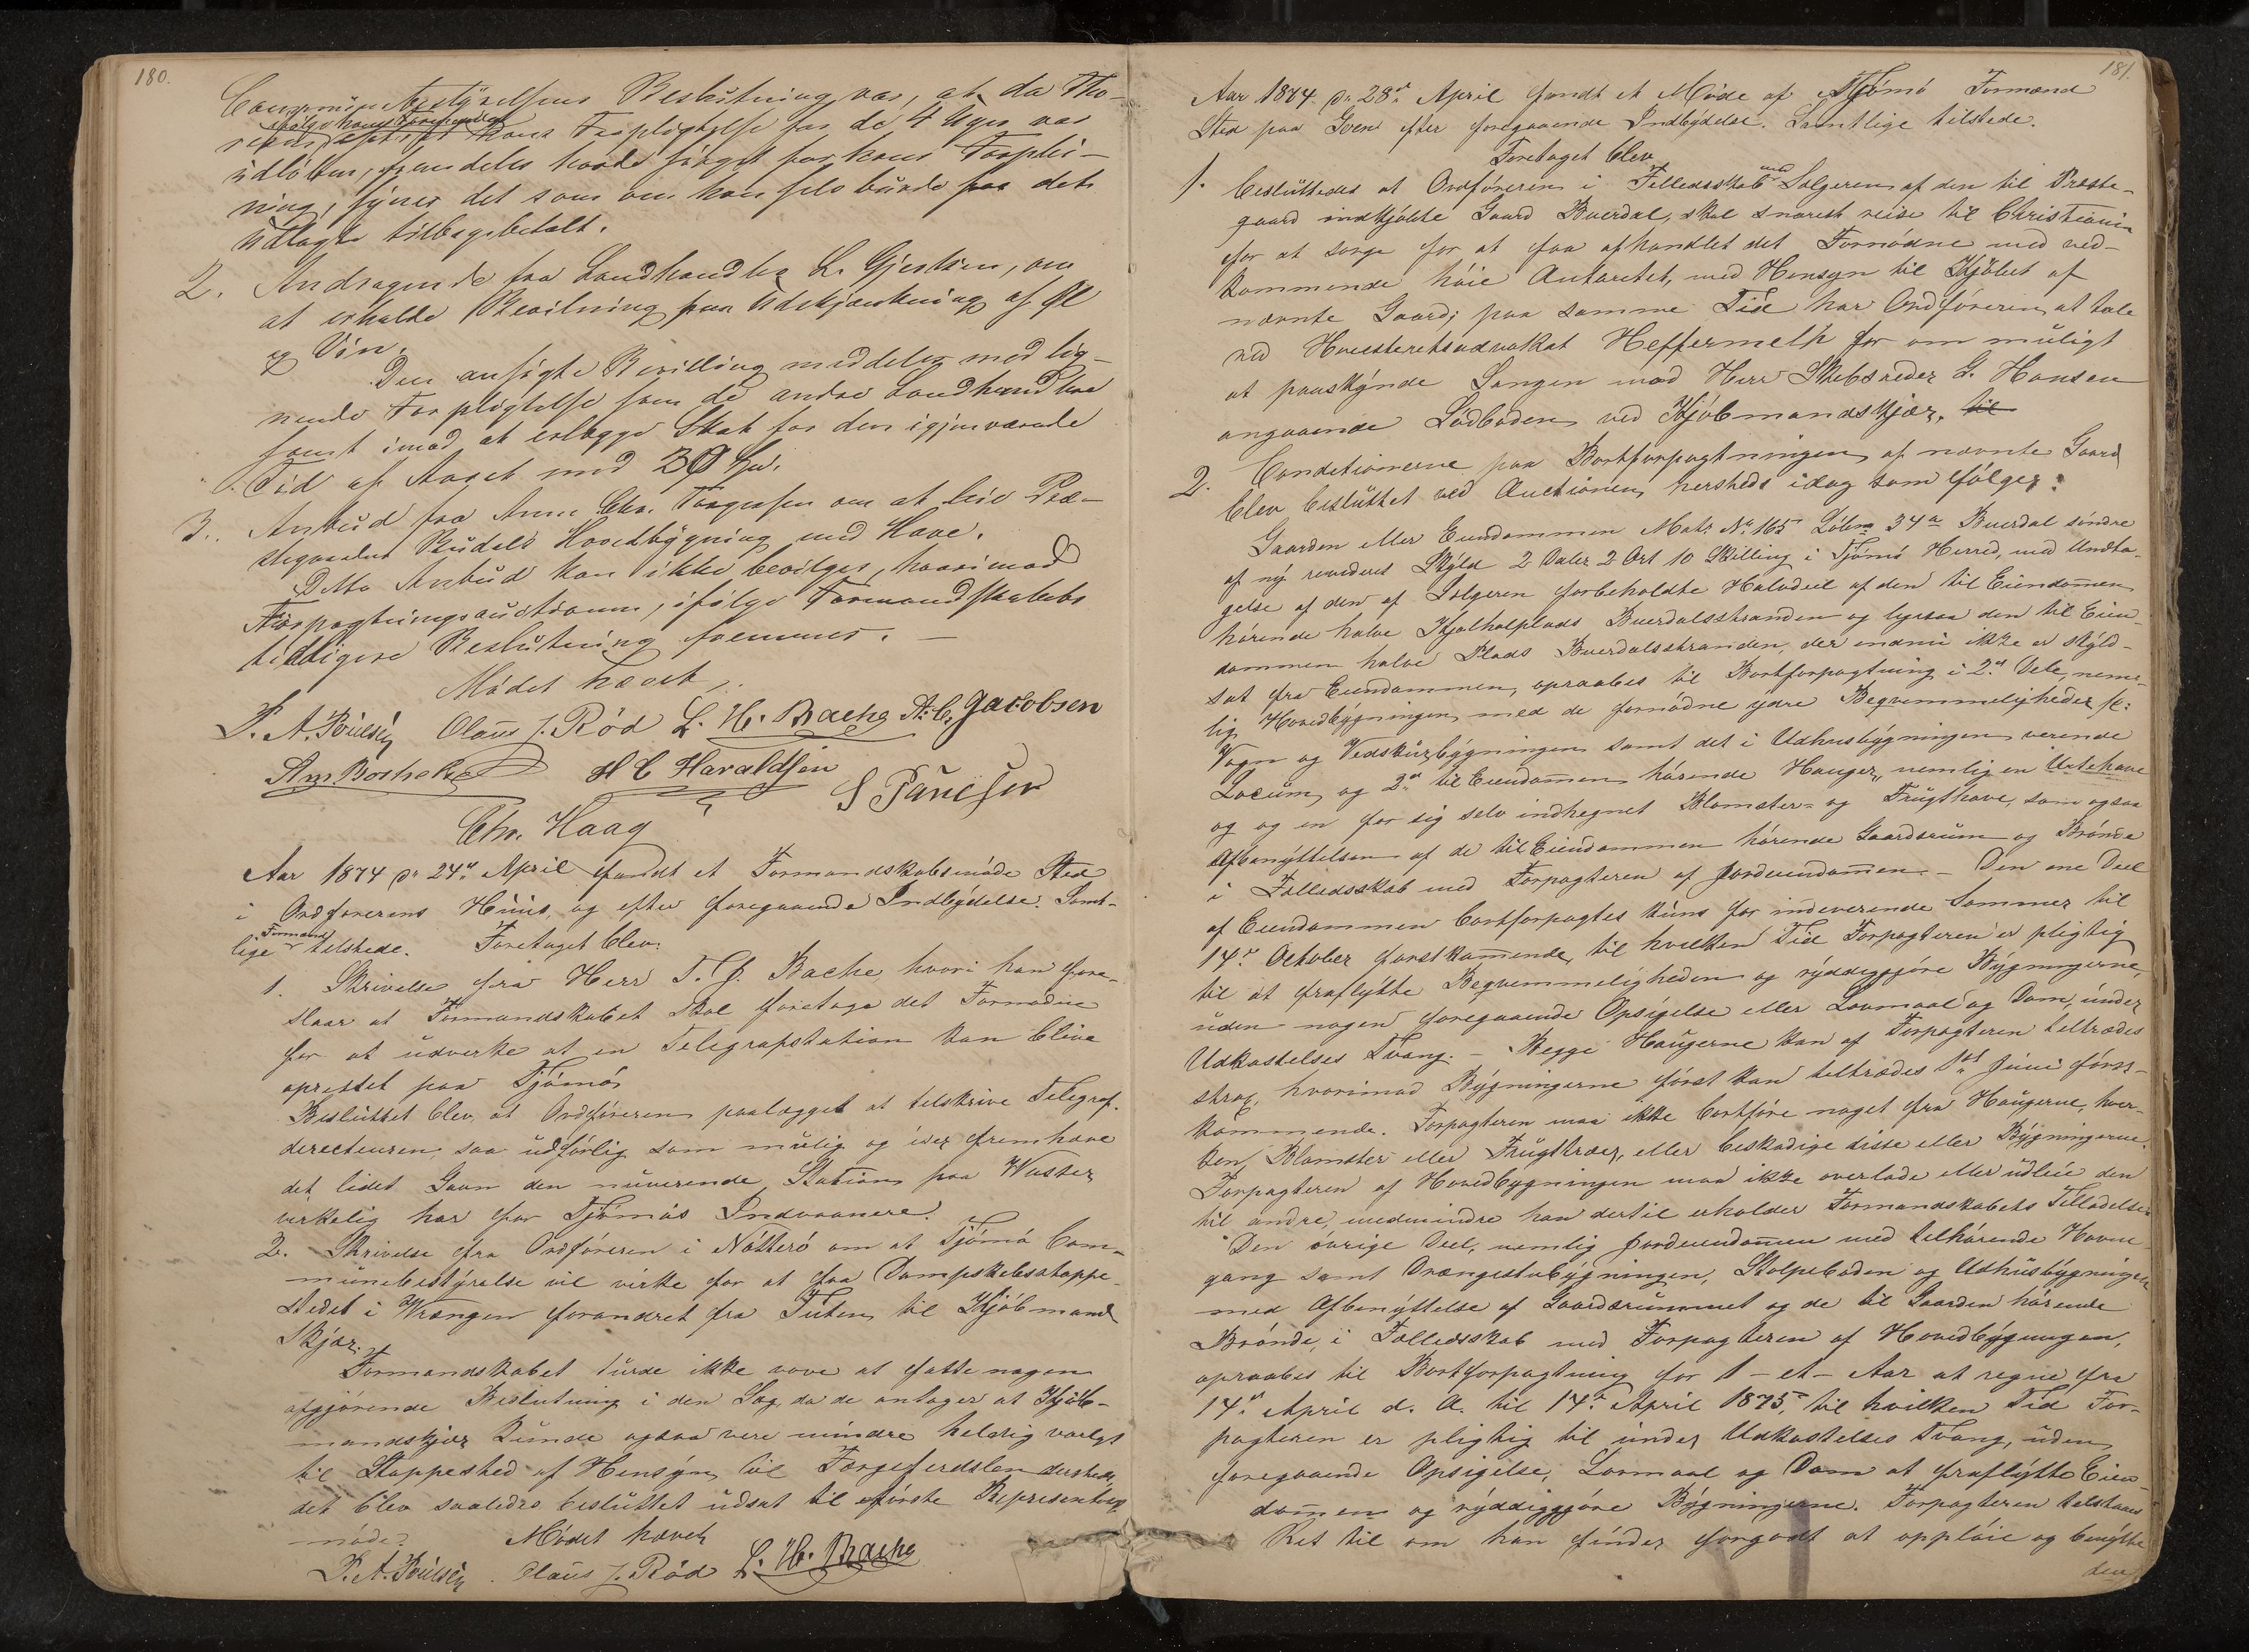 180.
Communebestyrelsens Beslutning var, at da Tho-
ifølge hans Foregivende
hans Forpligtelse for de 4 Uger var
udløben, fremdeles havde sørget for hans Forplei-
ning, synes det som om han selv burde faa det
udlagte tilbagebetalt.
2. Andragende fra Landhandler L. Gjertsen, om
at erholde Bevilning paa Udskjænkning af Øl
og Vin.
Den ansøgte Bevilling meddeles med lig-
nende Forpligtelse som de andre Landhandlere
samt imod at erlægge Skat for den igjenværende
Tid af Aaret med 30
3. Anbud fra Anne Chr. Torgersen om at leie Præ-
stegaarden Buerdals Hovedbygning med Have.
Dette Anbud kan ikke bevilges, hvorimod
Forpagtningsauctionen, ifølge Formandskabets
tidligere Beslutning fremmes. –
Mødet hævet.
P. A. Poulsen Olaus J. Röd L. H. Bache A. C. Jacobsen
H C Haraldsen S Paulsen
Chr. Haag
Aar 1874 d. 24de April fandt et Formandskabsmöde Sted
i Ordförerens Huus, og efter foregaaende Indbydelse. Samt-
lige Formænd tilstede. Foretaget blev:
1. Skrivelse fra Herr T. J. Bache, hvori han fore-
slaar at Formandskabet skal foretage det Fornødne
for at udvirke at en Telegrafstation kan blive
oprettet paa Tjømö.
Besluttet blev, at Ordföreren paalægget at tilskrive Telegraf-
directeuren, saa udförlig som mulig og især fremhæve
det lidet Gavn den nuværende Station paa Vasser
virkelig har for Tjømös Indvaanere.
2. Skrivelse fra Ordföreren i Nötterö om at Tjömö Com-
munebestyrelse vil virke for at faa Dampskibsstoppe-
stedet i Vrængen forandret fra Tuten til Kjöbmand
Skjær.
Formandskabet turde ikke vove at fatte nogen
afgjörende Beslutning i den Sag, da de antager at Kjöb-
mandskjær kunde ogsaa være mindre heldig valgt
til Stoppested af Hensyn til Færgeferdslen dersteds,
det blev saaledes besluttet udsat til förste Representant
möde. Mødet hævet
P. A. Poulsen. Olaus J. Röd L. H. Bache
181.
Aar 1874. d. 28de April fandt et Möde af Tjömö Formænd
Sted paa Gren efter foregaaende Indbydelse. Samtlige tilstede.
Foretaget blev
1. besluttedes at Ordföreren i Felledsskab med Sælgeren af den til Præste-
gaard indkjöbte Gaard Buerdal, skal snarest reise til Christiania
for at sørge for at faa afhandlet det Fornødne med ved-
kommende höie Autoritet, med Hensyn til Kjöbet af
nævnte Gaard; paa samme Tid har Ordföreren at tale
ved Høiesteretsadvokat Heffermelh for om muligt
at paaskynde Sagen mod Herr Skibsreder G. Hansen
angaaende Lödboden ved Kjöbmandskjær. til
2. Conditionerne paa Bortforpagtningen af nævnte Gaard
blev besluttet ved Auctionen hersteds idag som fölger:
Gaarden eller Eiendommen Matr. No. 165 Löbno 34a Buerdal söndre
af ny revideret Skyld 2 Daler 2 Ort 10 Skilling i Tjömö Herred, med Undta-
gelse af den af Sælgeren forbeholdte Halvdeel af den til Eiendomen
hörende halve Kjølhalplads Buerdalsstranden og ligesaa den til Eien-
dommen halve Plads Buerdalsstranden, der endnu ikke er skyld-
sat fra Eiendommen, opraabes til Bortforpagtning i 2de Dele, nem-
lig Hovedbygningen med de fornødne ydre Begvemmeligheder sc:
Vogn og Vedskurbygningen samt det i Udhusbygningen verende
Locum, og 2de til Eiendomen hörende Hauger, nemlig en Urtehave
og og en for sig selv indhegnet Blomster- og Frugthave, som ogsaa
Afbenyttelsen af de til Eiendommen hörende Gaardsrum og Brönde
i Felledsskab med Forpagteren af Jordeiendomen. – Den ene Deel
af Eiendommen bortforpagtes kuns for indeverende Sommer til
14de October förstkomende, til hvilken Tid Forpagteren er pligtig
til at fraflytte Begvemmeligheden og ryddiggjöre Bygningerne,
uden nogen foregaaende Opsigelse eller Lovmaal og Dom, under
Udkastelses Tvang. – Begge Haugerne kan af Forpagteren tiltrædes
strax, hvorimod Bygningerne först kan tiltrædes 1st Juni först-
kommende. Forpagteren maa ikke bortföre noget fra Haugerne, hver-
ken Blomster eller Frugttræer, eller beskadige disse eller Bygningerne.
Forpagteren af Hovedbygningen maa ikke overlade eller udleie den
til andre, medmindre han dertil erholder Formandskabets Tilladelse.
Den övrige Deel, nemlig Jordeiendomen med tilhörende Havne-
gang samt Drængestubygningen, Stolpeboden og Udhusbygningen
med Afbenyttelse af Gaardsrummet og de til Gaarden hörende
Brönde, i Felledsskab med Forpagteren af Hovedbygningen,
opraabes til Bortforpagtning for 1 – et – Aar at regne fra
14de April d. A. til 14de April 1875 til hvilken Tid For-
pagteren er pligtig til under Udkastelses Tvang, uden
foregaaende Opsigelse, Lovmaal og Dom at fraflytte Eien-
domen og ryddiggjöre Bygningerne. Forpagteren tilstaaes
Ret til om han finder forgodt at opplöie og benytte
den